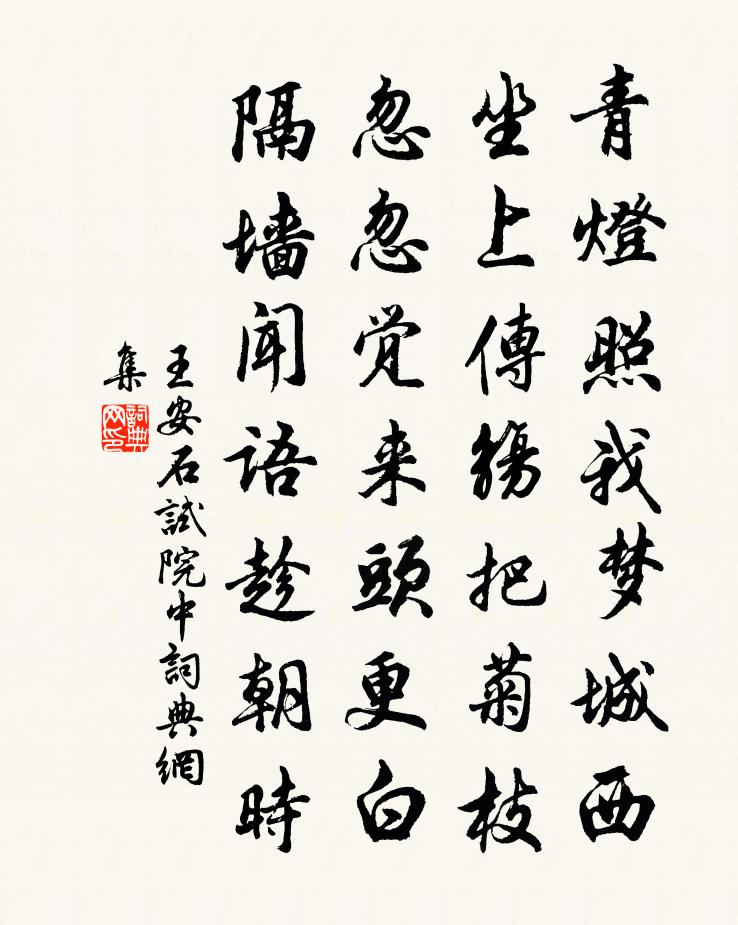 青燈照我梦城西
坐上傳觴把菊枝
忽忽觉来頭更白
隔墙闻语趁朝時
王安石試院中詞典網
集
詞典
网印